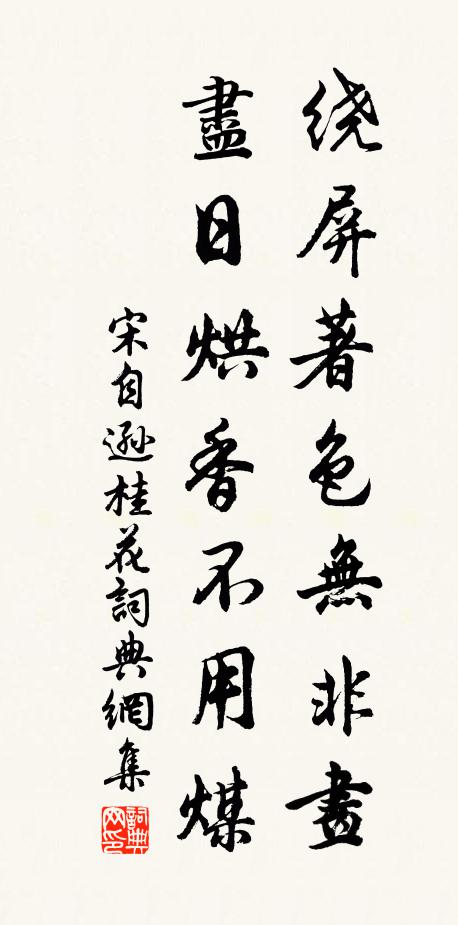 绕屏著色無非畫
盡日烘香不用煤
宋自遜桂花詞典網集
詞典网印